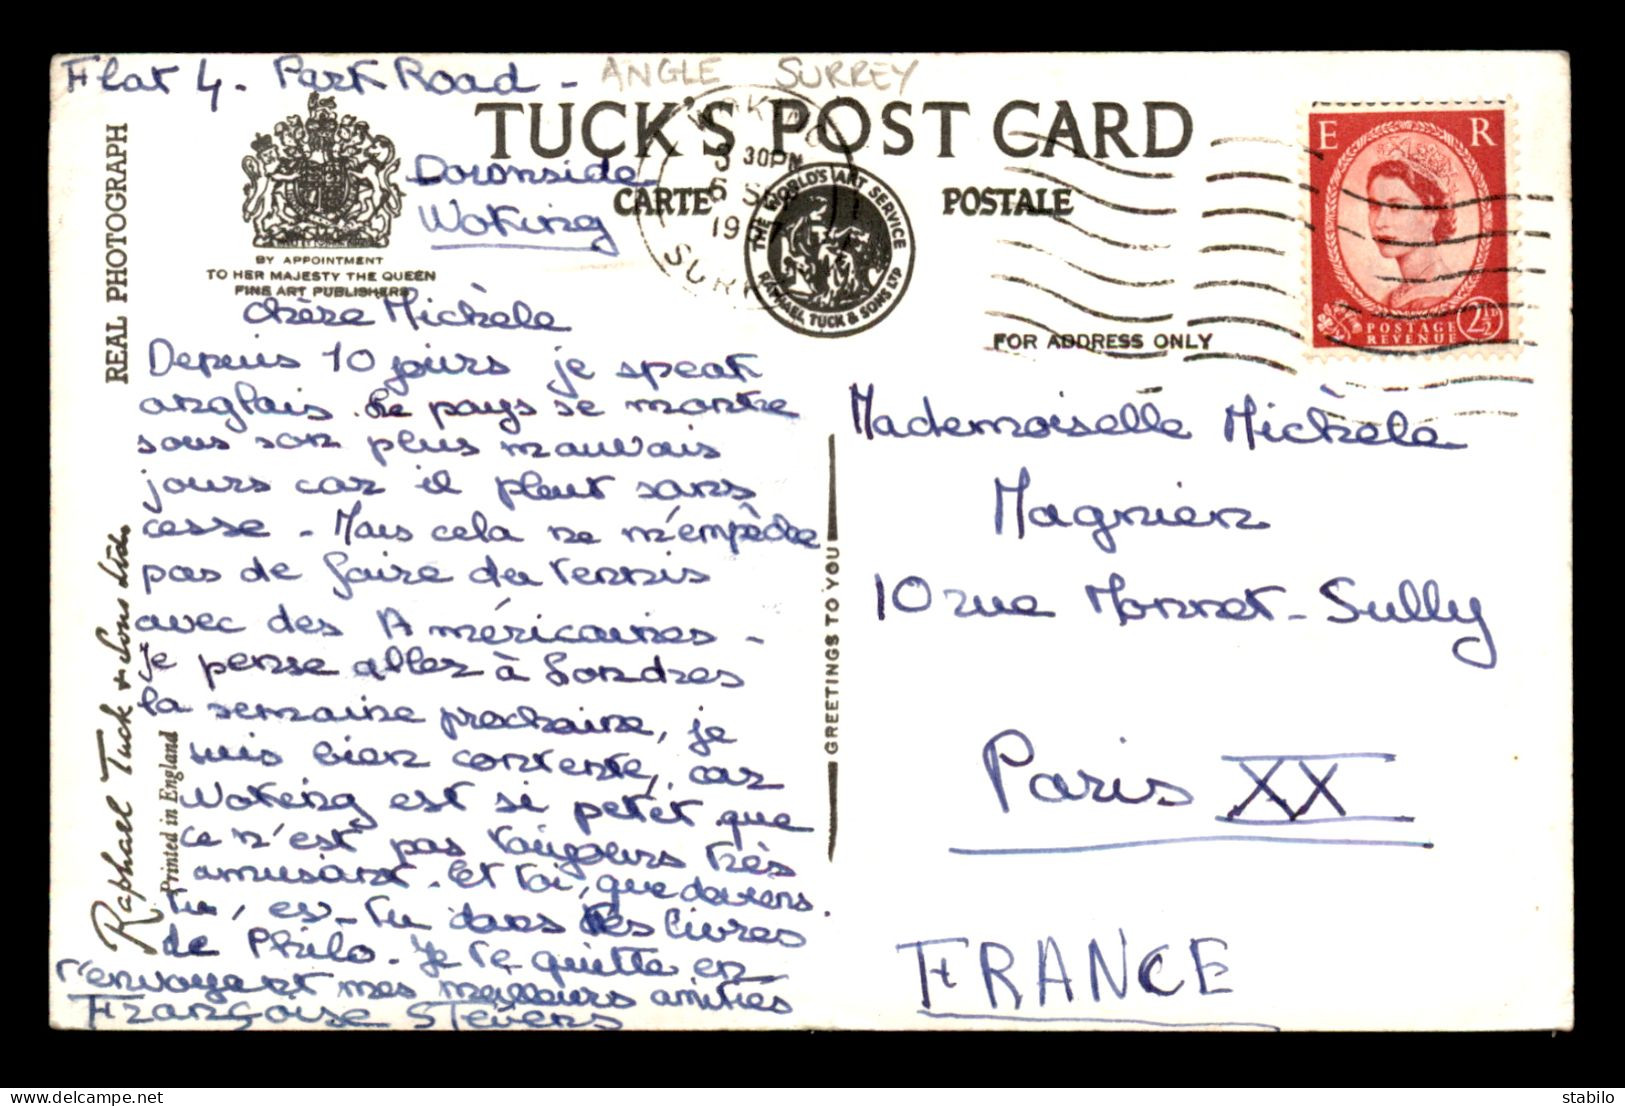 Flat 4. Park Road -
ANGLE SURREY
TUCK'S POST CARD
Downside
Woking
CARTE POSTALE
WOKING
3 30PM
6 SE
19 7
SURR
THE WORLD'S ART SERVICE
RAPHAEL TUCK & SONS LTD
E R
POSTAGE
REVENUE
2½D
BY APPOINTMENT
TO HER MAJESTY THE QUEEN
FINE ART PUBLISHERS
REAL PHOTOGRAPH
Raphael Tuck & Sons Ltd.
Printed in England
FOR ADDRESS ONLY
GREETINGS TO YOU
chère Michèle
Depuis 10 jours je speak
anglais. Le pays se montre
sous son plus mauvais
jours car il pleut sans
cesse - Mais cela ne m'empêche
pas de faire du tennis
avec des Américaines -
Je pense aller à Londres
la semaine prochaine, je
suis bien contente, car
Woking est si petit que
ce n'est pas toujours très
amusant. Et toi, que deviens
tu, es-tu dans tes livres
de Philo. Je te quitte en
t'envoyant mes meilleurs amitiés
Françoise Stevens
Mademoiselle Michèle
Magnien
10 rue Monnet-Sully
Paris XX
FRANCE
stabilo Delcampe.net